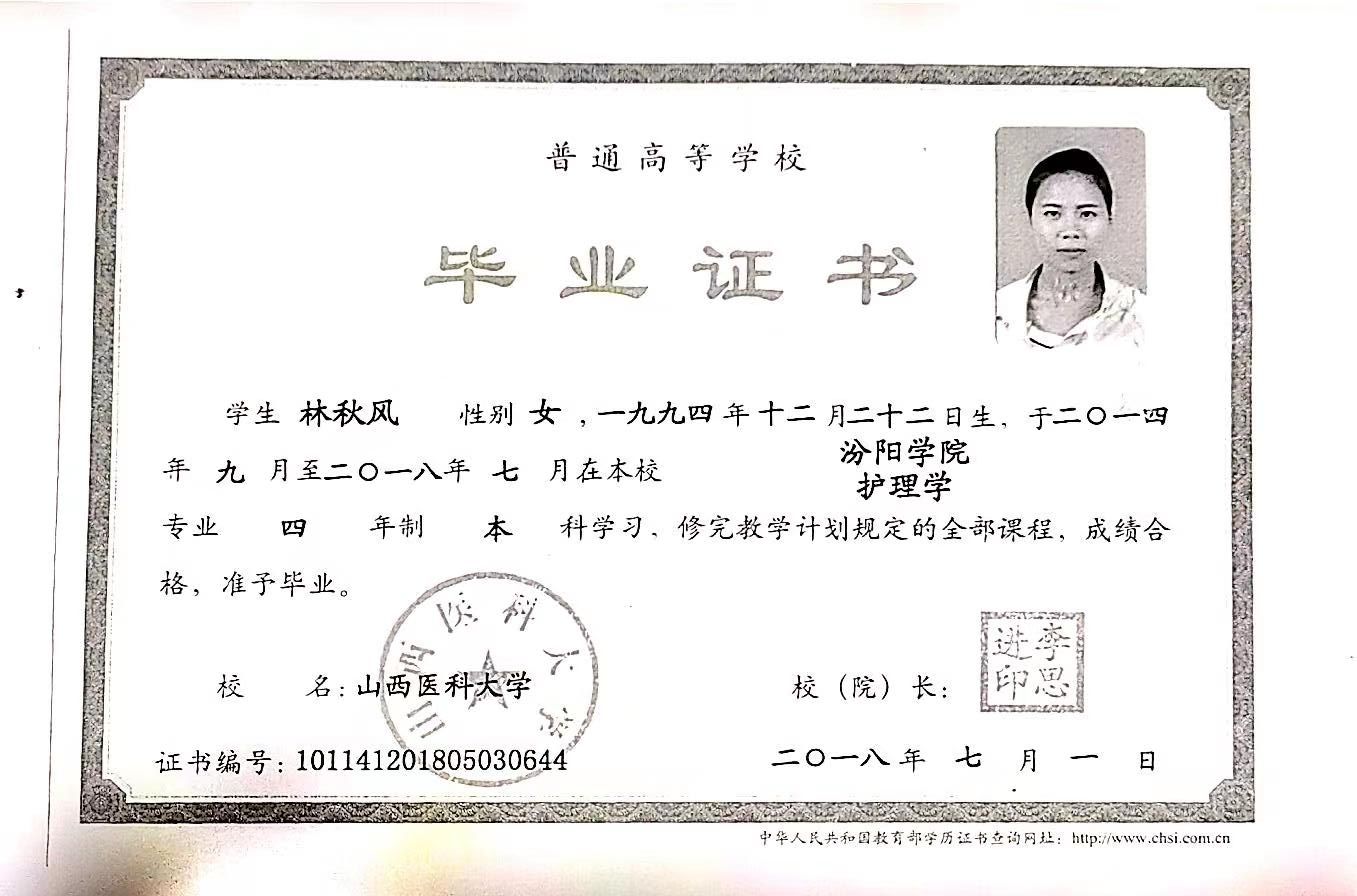 普通高等学校
毕业证书
学生 林秋风 性别 女，一九九四年十二月二十二日生，于二〇一四
汾阳学院
年 九 月至二〇一八年 七 月在本校
护理学
专业 四 年制 本 科学习，修完教学计划规定的全部课程，成绩合
格，准予毕业。
山西医科大学
李思进印
校 名：山西医科大学 校（院）长：
证书编号：101141201805030644 二〇一八年 七 月 一 日
中华人民共和国教育部学历证书查询网址：http://www.chsi.com.cn